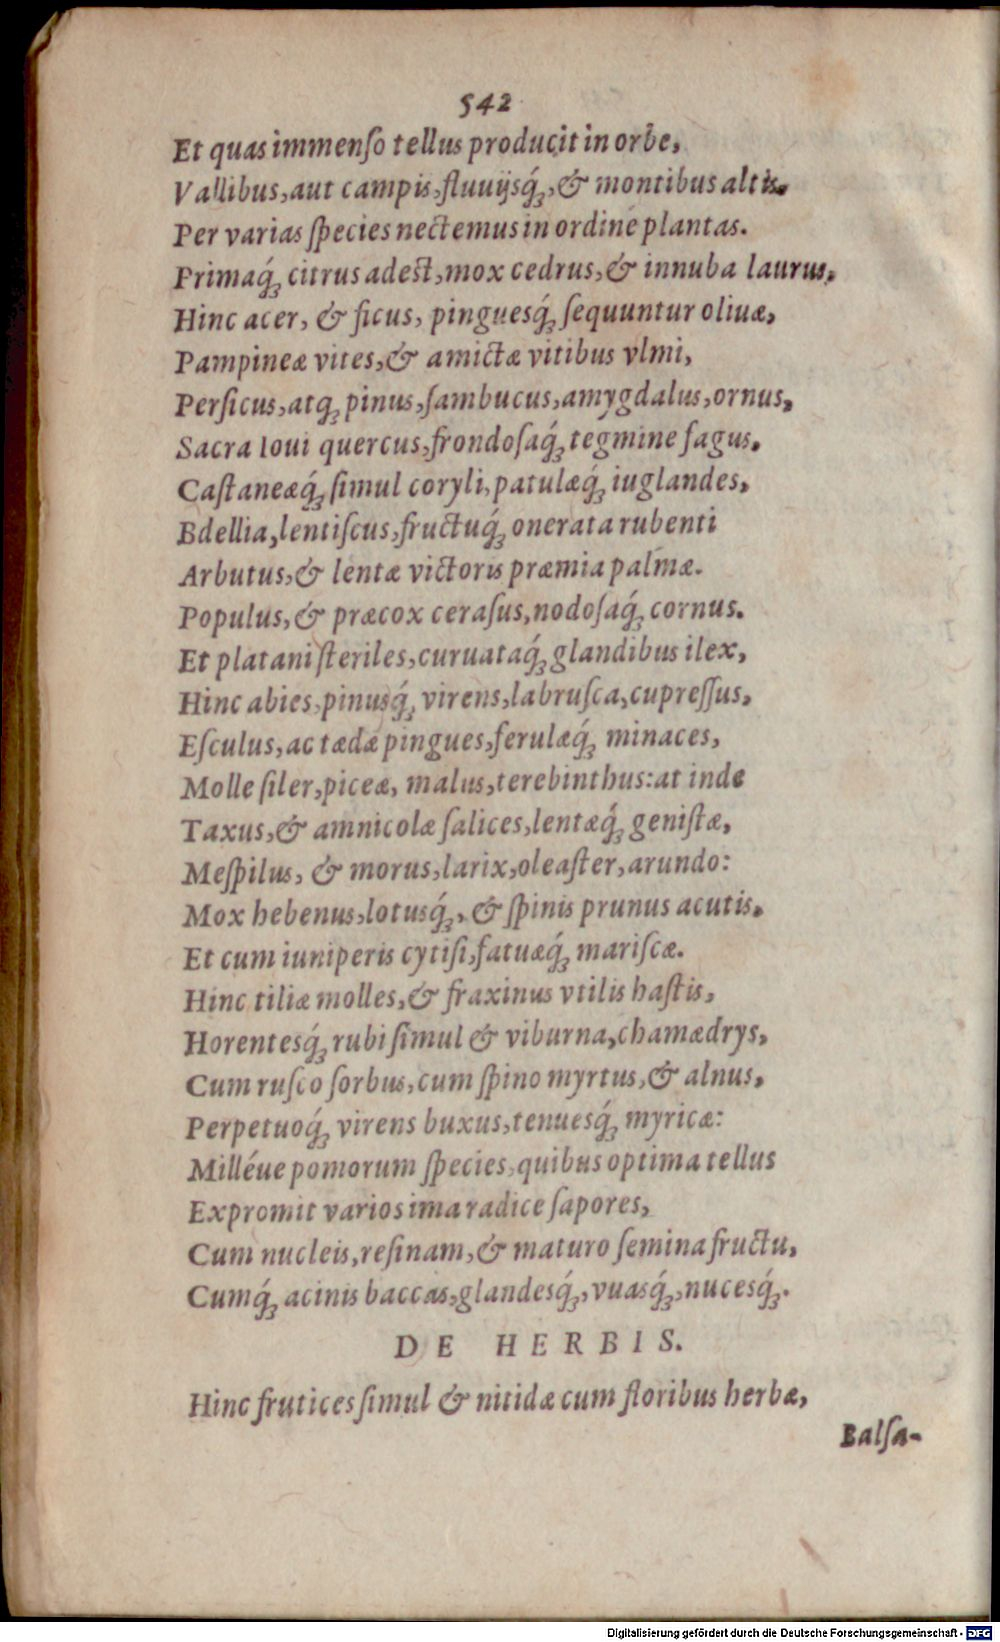 542
Et quas immenſo tellus producit in orbe,
Vallibus, aut campis, fluuijsq́;, & montibus altis.
Per varias ſpecies nectemus in ordine plantas.
Primaq́; citrus adest, mox cedrus, & innuba laurus,
Hinc acer, & ficus, pinguesq́; ſequuntur oliuæ,
Pampineæ vites, & amictæ vitibus vlmi,
Perſicus, atq; pinus, ſambucus, amygdalus, ornus,
Sacra Ioui quercus, frondoſaq́; tegmine fagus.
Caſtaneæq́; ſimul coryli, patulæq́; iuglandes,
Bdellia, lentiſcus, fructuq́; onerata rubenti
Arbutus, & lentæ victoris præmia palmæ.
Populus, & præcox ceraſus, nodoſaq́; cornus.
Et platani ſteriles, curuataq́; glandibus ilex,
Hinc abies, pinusq́; virens, labruſca, cupreſſus,
Eſculus, ac tædæ pingues, ferulæq́; minaces,
Molle ſiler, piceæ, malus, terebinthus: at inde
Taxus, & amnicolæ ſalices, lentæq́; geniſtæ,
Meſpilus, & morus, larix, oleaſter, arundo:
Mox hebenus, lotusq́;, & ſpinis prunus acutis.
Et cum iuniperis cytiſi, fatuæq́; mariſcæ.
Hinc tiliæ molles, & fraxinus vtilis haſtis,
Horentesq́; rubi ſimul & viburna, chamædrys,
Cum ruſco ſorbus, cum ſpino myrtus, & alnus,
Perpetuoq́; virens buxus, tenuesq́; myricæ:
Milléue pomorum ſpecies, quibus optima tellus
Expromit varios ima radice ſapores,
Cum nucleis, reſinam, & maturo ſemina fructu,
Cumq́; acinis baccas, glandesq́;, vuasq́;, nucesq́;.
DE HERBIS.
Hinc frutices ſimul & nitidæ cum floribus herbæ,
Balſa-
Digitalisierung gefördert durch die Deutsche Forschungsgemeinschaft - DFG